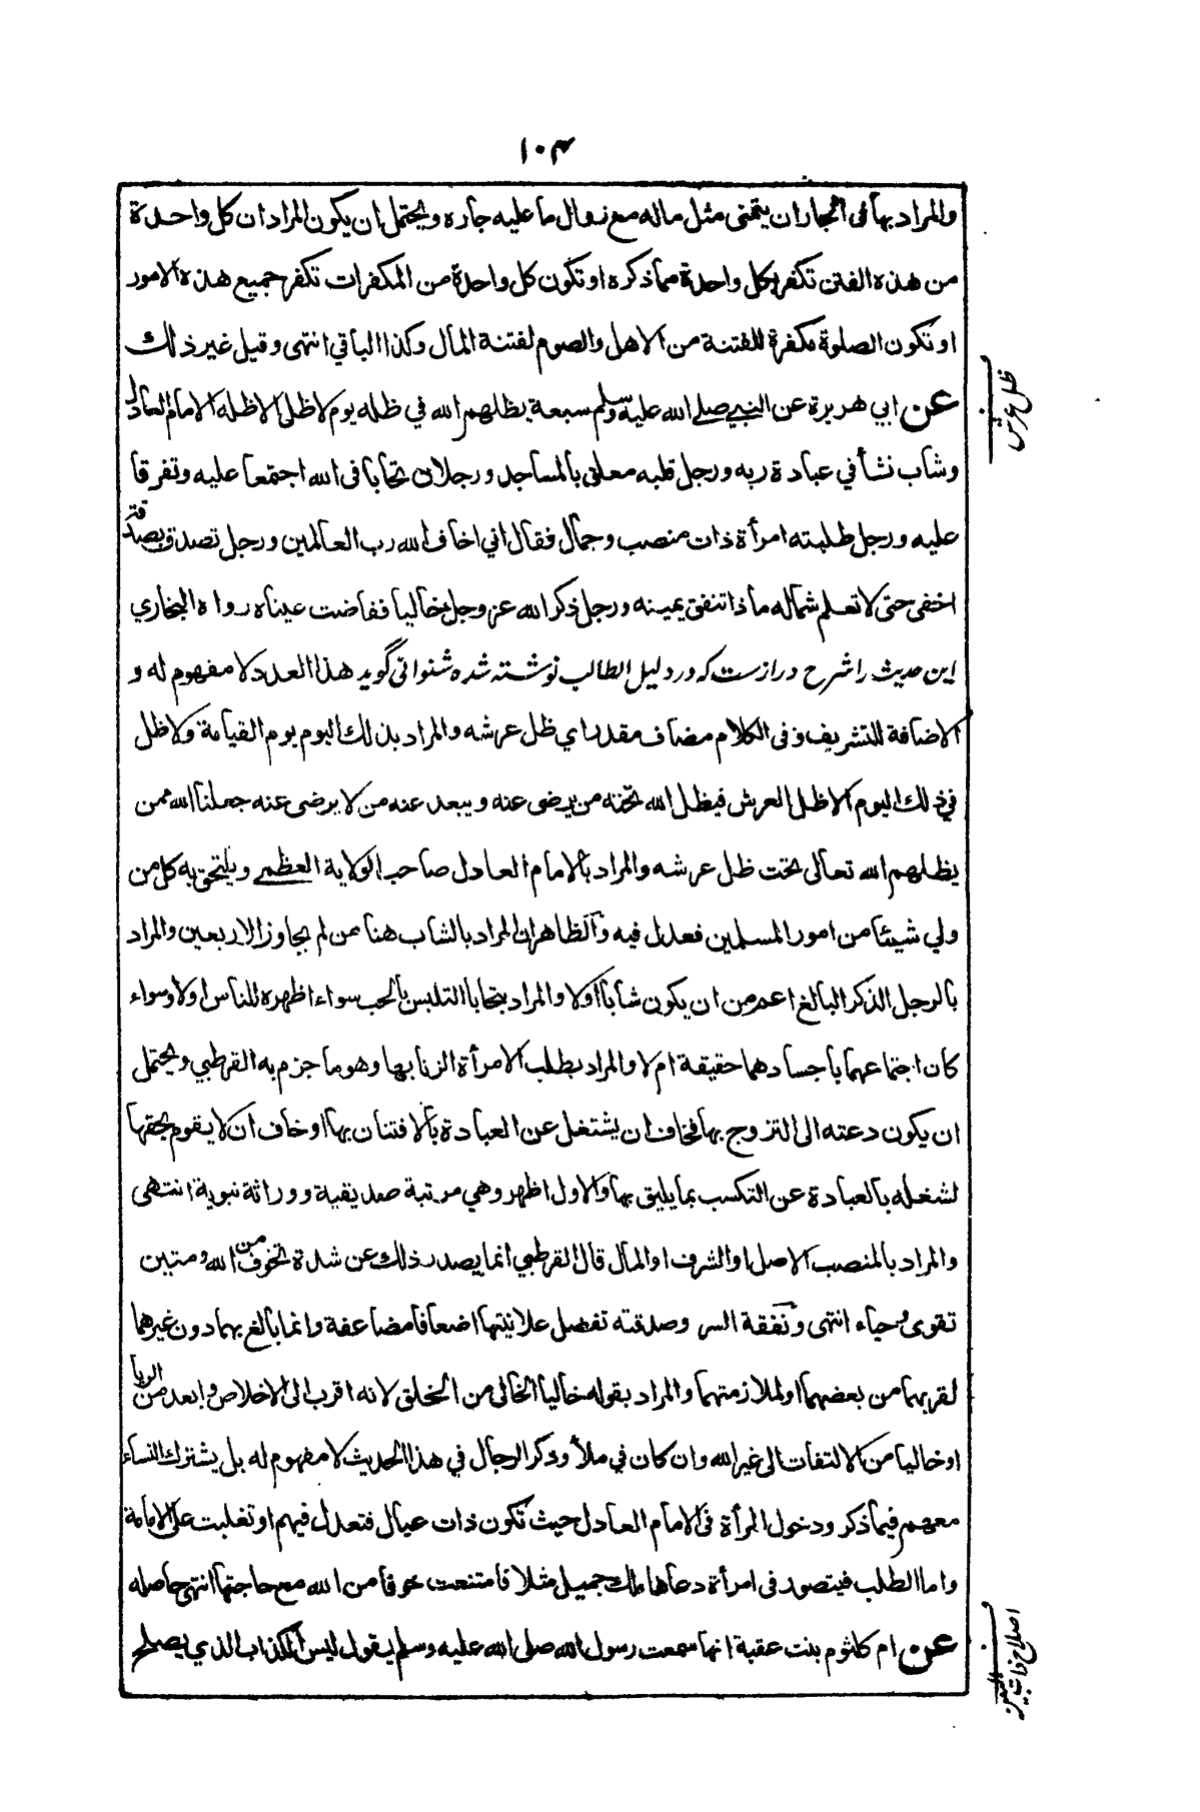 ١٠٣
والمراد بها فى الجاران يتمنى مثل ماله مع زوال ما عليه جاره ويحتمل ان يكون المراد ان كل واحدة
من هذه الفتن تكفر بكل واحدة مما ذكره او تكون كل واحدة من المكفرات تكفر جميع هذه الامور
او تكون الصلوة مكفرة للفتنة من الاهل والصوم لفتنة المال وكذا الباقي انتهى وقيل غير ذلك
ظل عرش
عن ابي هريرة عن النبي صلے الله عليه وسلم سبعة يظلهم الله في ظله يوم لا ظل الا ظله الامام العادل
وشاب نشأ في عبادة ربه ورجل قلبه معلق بالمساجد ورجلان تحابا فى الله اجتمعا عليه وتفرقا
عليه ورجل طلبته امرأة ذات منصب وجمال فقال اني اخاف الله رب العالمين ورجل تصدق بصدقة
اخفى حتى لا تعلم شماله ماذا تنفق يمينه ورجل ذكر الله عز وجل خاليا ففاضت عيناه رواه البخاري
این حدیث را شرح درازست که در دلیل الطالب نوشته شده شنوانی گوید هذا العدد لا مفهوم له و
الاضافة للتشريف وفى الكلام مضاف مقدر اي ظل عرشه والمراد بذلك اليوم يوم القيامة ولا ظل
في ذلك اليوم الا ظل العرش فيظل الله تحته من يرضى عنه ويبعد عنه من لا يرضى عنه جعلنا الله ممن
يظلهم الله تعالى تحت ظل عرشه والمراد بالامام العادل صاحب الولاية العظمے ويلتحق به كل من
ولي شيئا من امور المسلمين فعدل فيه والظاهر ان المراد بالشاب هنا من لم يجاوز الاربعين والمراد
بالرجل الذكر البالغ اعم من ان يكون شابا اولا والمراد بتحابا التلبس بالحب سواء اظهره للناس اولا وسواء
كان اجتماعهما باجسادهما حقيقة ام لا والمراد بطلب الامرأة الزنا بها وهو ما جزم به القرطبي ويحتمل
ان يكون دعته الى التزوج بها فخاف ان يشتغل عن العبادة بالافتتان بها او خاف ان لا يقوم بحقها
لشغله بالعبادة عن التكسب بما يليق بها والاول اظهر وهي مرتبة صديقية ووراثة نبوية انتهى
والمراد بالمنصب الاصل او الشرف او المال قال القرطبي انما يصدر ذلك عن شدة تخوف من الله ومتين
تقوى وحياء انتهى ونفقة السر وصدقته تفضل علانيتها اضعافا مضاعفة وانما بالغ بهما دون غيرهما
لقربهما من بعضهما او لملازمتهما والمراد بقوله خاليا الخالى من الخلق لانه اقرب الى الاخلاص وابعد من الريا
او خاليا من الالتفات الى غير الله وان كان في ملأ وذكر الرجال في هذا الحديث لا مفهوم له بل يشترك النساء
معهم فيما ذكر ودخول المرأة فى الامام العادل حيث تكون ذات عيال فتعدل فيهم او تغلبت على الامامة
واما الطلب فيتصور فى امرأة دعاها ملك جميل مثلا فامتنعت خوفا من الله مع حاجتها انتهى حاصله
اصلاح ذات البين
عن ام كلثوم بنت عقبة انها سمعت رسول الله صلى الله عليه وسلم يقول ليس الكذاب الذي يصلح